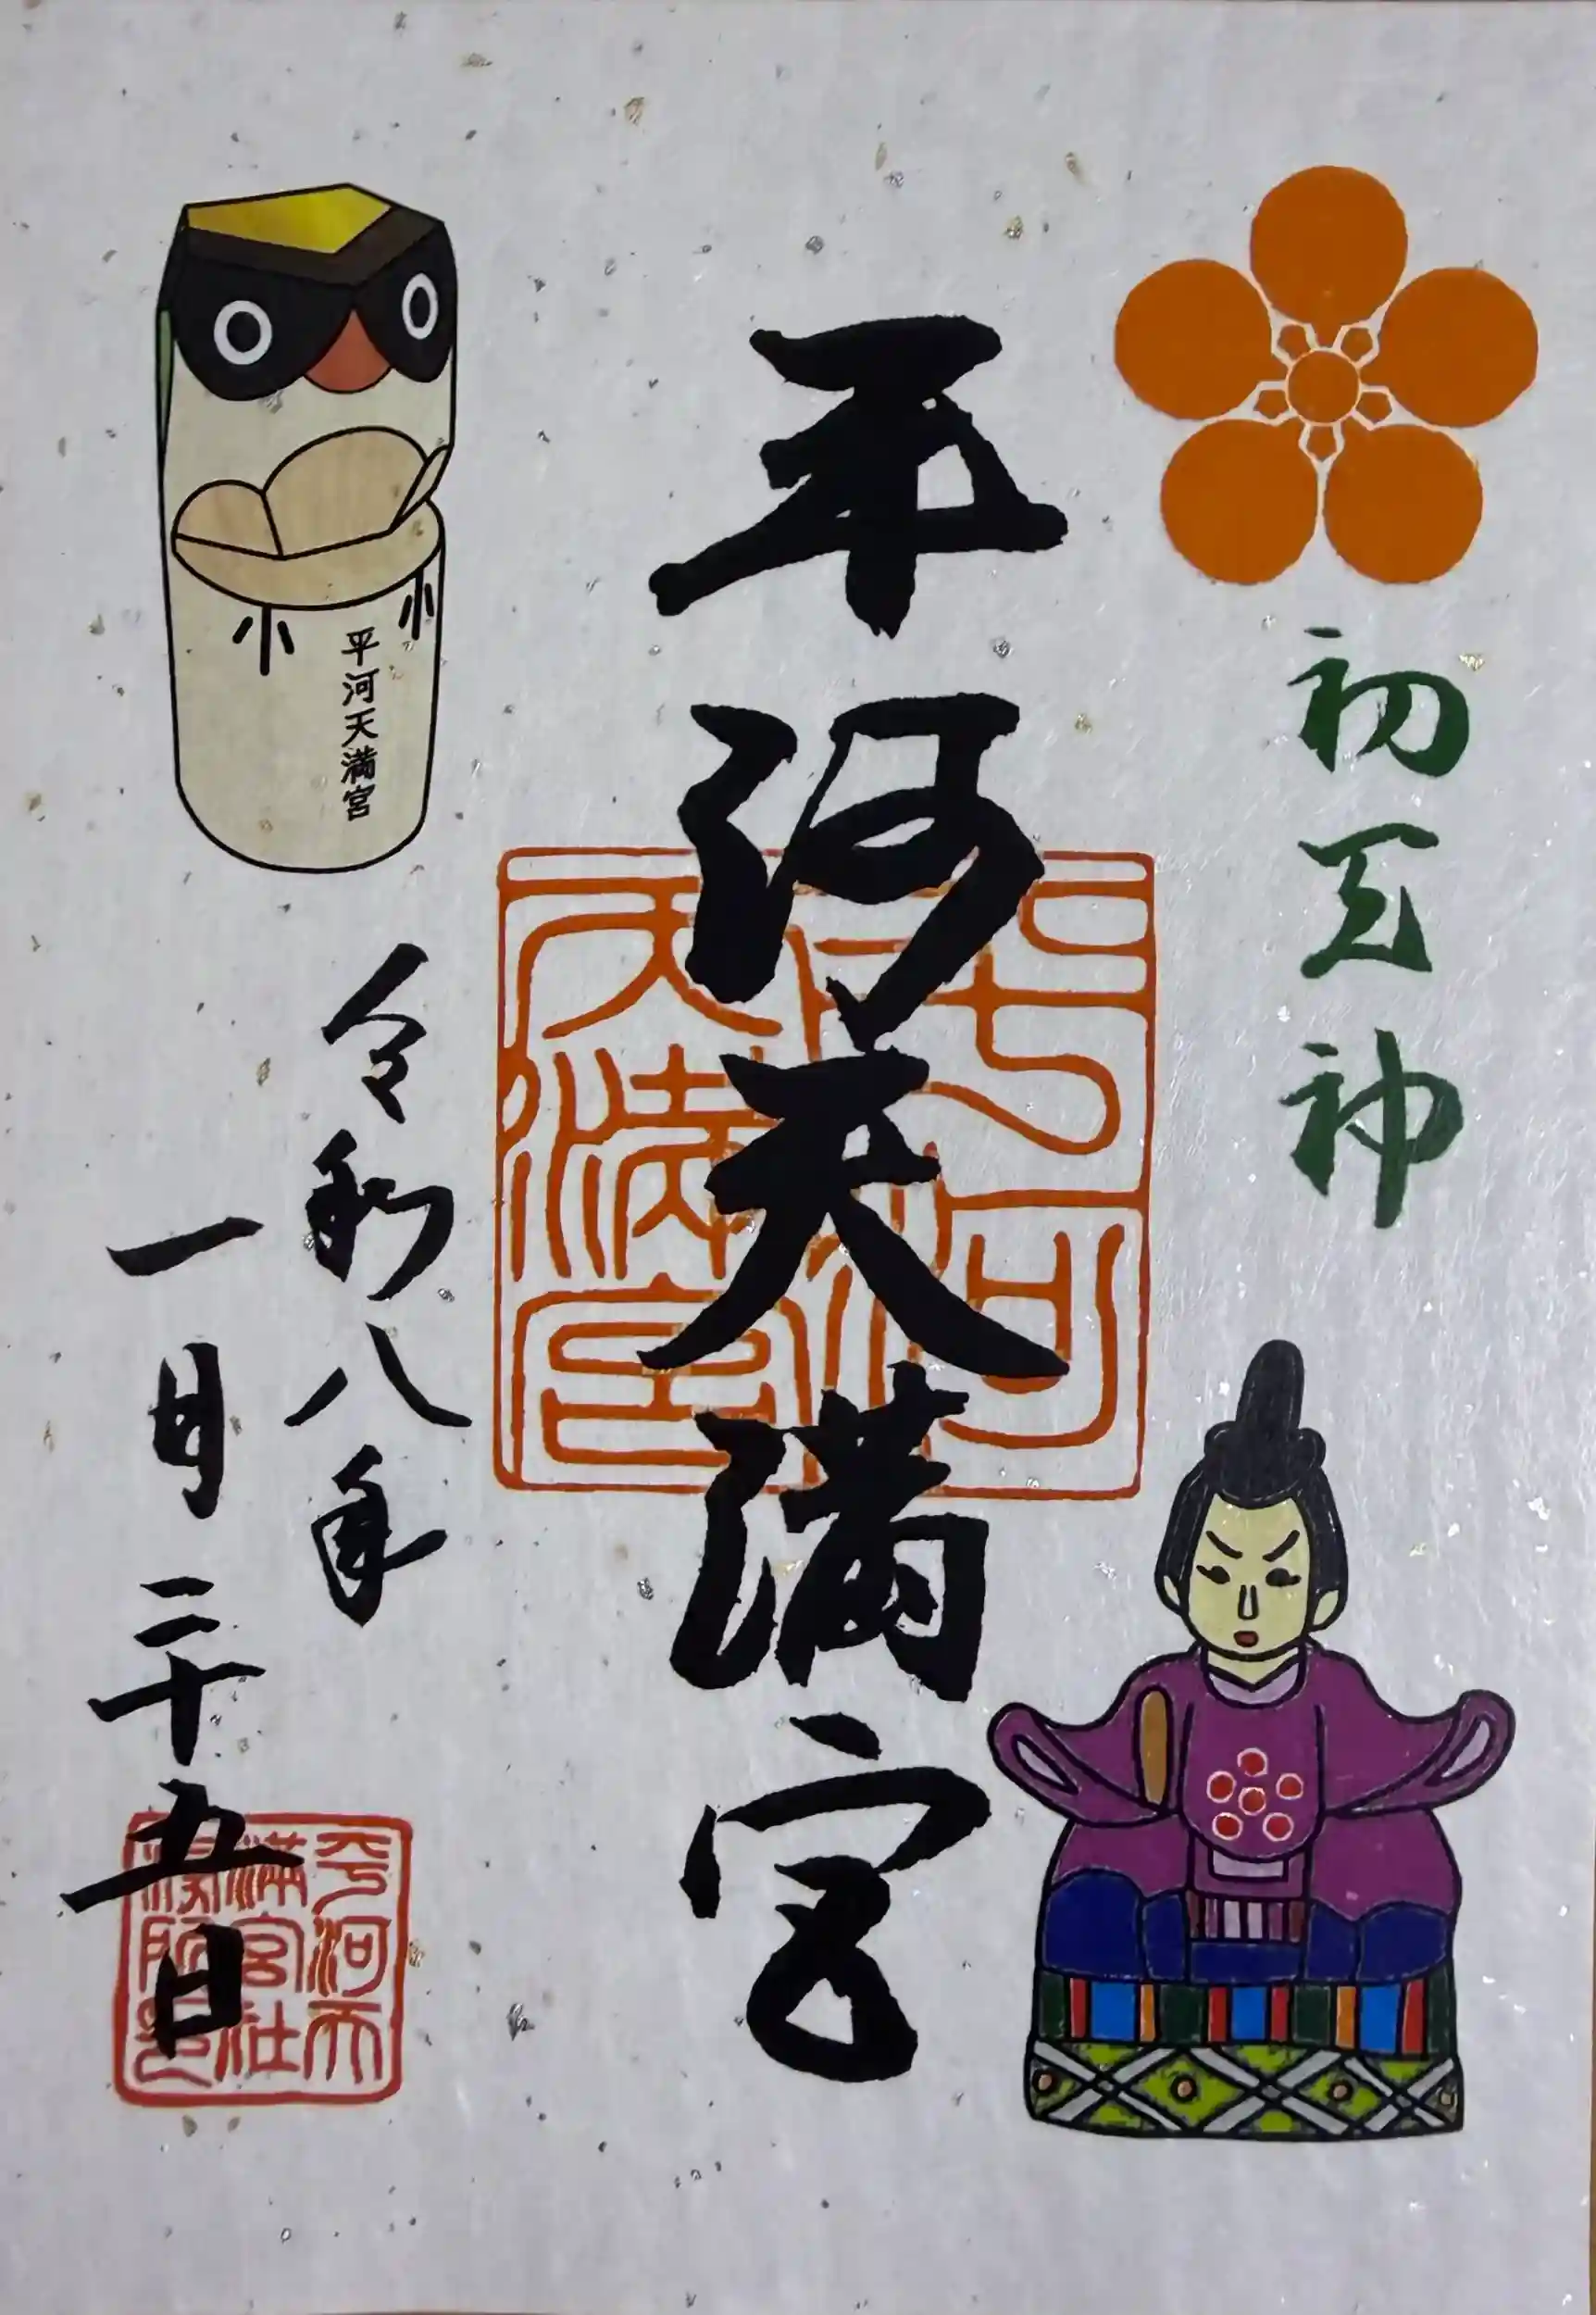 初天神
平河天満宮
平河天満宮
平河天満宮
令和八年
一月二十五日
平河天
満宮社
務所之印